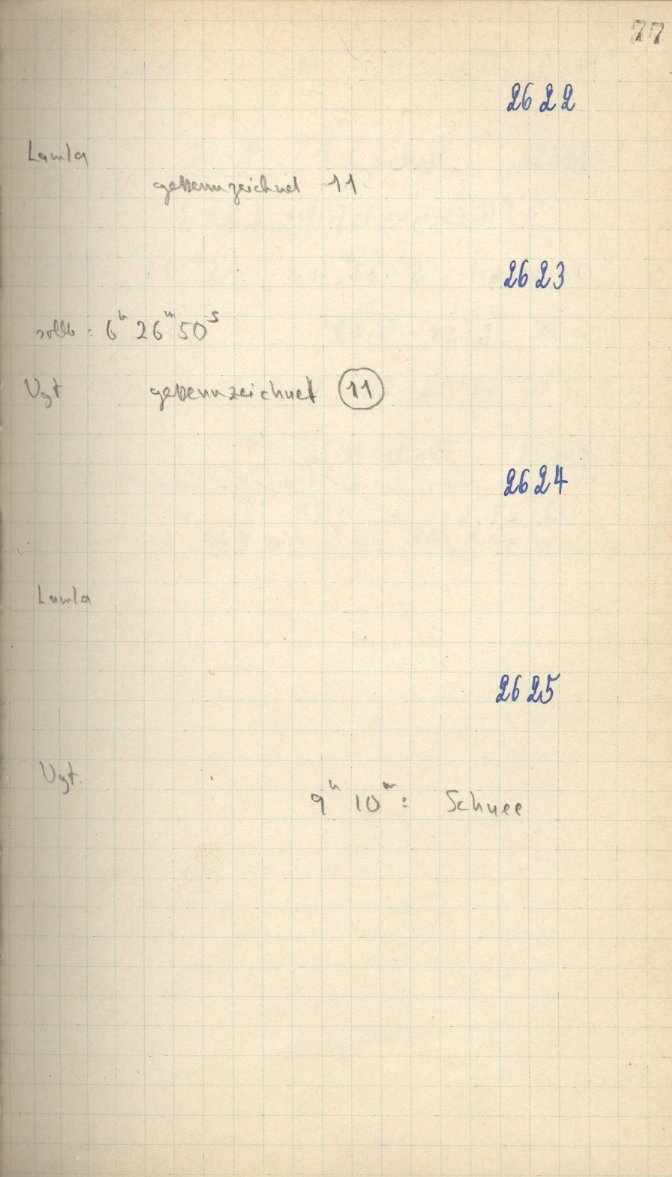 77
2622
Lamla
gekennzeichnet 11
2623
6ʰ 26ᵐ 50ˢ
Vgt gekennzeichnet 11
2624
Lamla
2625
Vgt.
9ʰ 10ᵐ: Schnee